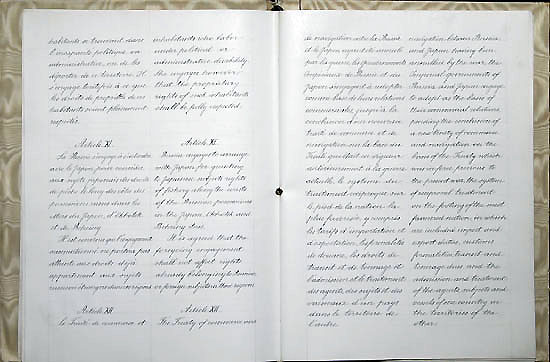 habitants se trouvant dans
l'incapacité politique ou
administrative, ou de les
déporter de ce territoire. Il
s'engage toutefois à ce que
les droits de propriété de ces
habitants soient pleinement
respectés.
Article XI.
La Russie s'engage à s'entendre
avec le Japon pour concéder
aux sujets japonais des droits
de pêche le long des côtes des
possessions russes dans les
Mers du Japon, d'Okhotsk
et de Behring.
Il est convenu que l'engagement
susmentionné ne portera pas
atteinte aux droits déjà
appartenant aux sujets
russes ou étrangers dans ces régions.
Article XII.
Le Traité de commerce et
inhabitants who labor
under political or
administrative disability.
He engages however
that the proprietary
rights of such inhabitants
shall be fully respected.
Article XI.
Russia engages to arrange
with Japan for granting
to Japanese subjects rights
of fishery along the coasts
of the Russian possessions
in the Japan, Okhotsk and
Behring Seas.
It is agreed that the
foregoing engagement
shall not affect rights
already belonging to Russian
or foreign subjects in those regions.
Article XII.
The Treaty of commerce and
de navigation entre la Russie
et le Japon ayant été annulé
par la guerre, les gouvernements
Impériaux de Russie et du
Japon s'engagent à adopter
comme base de leurs relations
commerciales, jusqu'à la
conclusion d'un nouveau
traité de commerce et de
navigation sur la base du
Traité qui était en vigueur
antérieurement à la guerre
actuelle, le système du
traitement réciproque sur
le pied de la nation la
plus favorisée, y compris
les tarifs d'importation et
d'exportation, les formalités
de douane, les droits de
transit et de tonnage et
l'admission et le traitement
des agents, des sujets et des
vaisseaux d'un pays
dans le territoire de
l'autre.
navigation between Russia
and Japan having been
annulled by the war, the
Imperial governments of
Russia and Japan engage
to adopt as the basis of
their commercial relations,
pending the conclusion of
a new treaty of commerce
and navigation on the
basis of the Treaty which
was in force previous to
the present war, the system
of reciprocal treatment
on the footing of the most
favored nation, in which
are included import and
export duties, customs
formalities, transit and
tonnage dues, and the
admission and treatment
of the agents, subjects and
vessels of one country in
the territories of the
other.